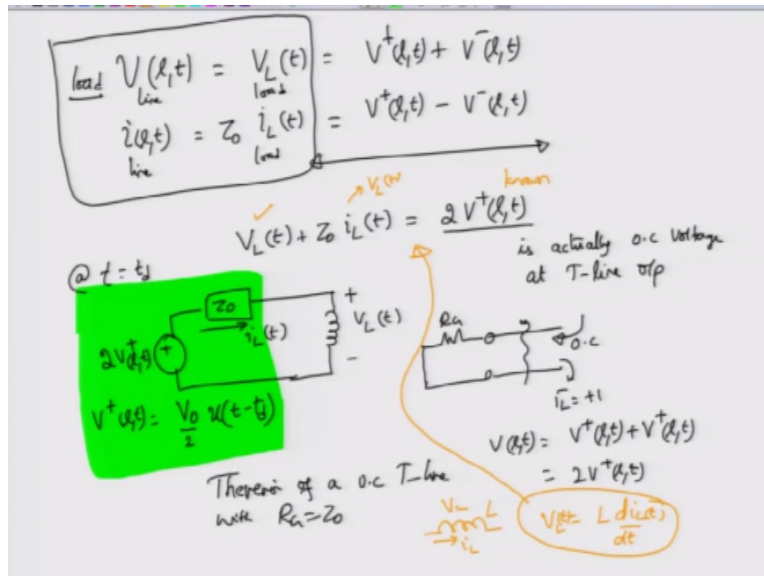 load V(l,t) = V_L(t) = V⁺(l,t) + V⁻(l,t)
line load
i(l,t) = Z₀ i_L(t) = V⁺(l,t) - V⁻(l,t)
line load
V_L(t)
known
✓
V_L(t) + Z₀ i_L(t) = 2V⁺(l,t)
is actually o.c voltage
at T-line o/p
@ t = t_d
Z₀
i_L(t)
+
V_L(t)
-
2V⁺(l,t)
+
V⁺(l,t) = V₀/2 u(t-t_d)
R_G
o.c
Γ_L = +1
V(l,t) = V⁺(l,t) + V⁺(l,t)
= 2V⁺(l,t)
Thevenin of a o.c T-line
with R_G = Z₀
V_L L
i_L
V_L(t) = L di_L(t)/dt